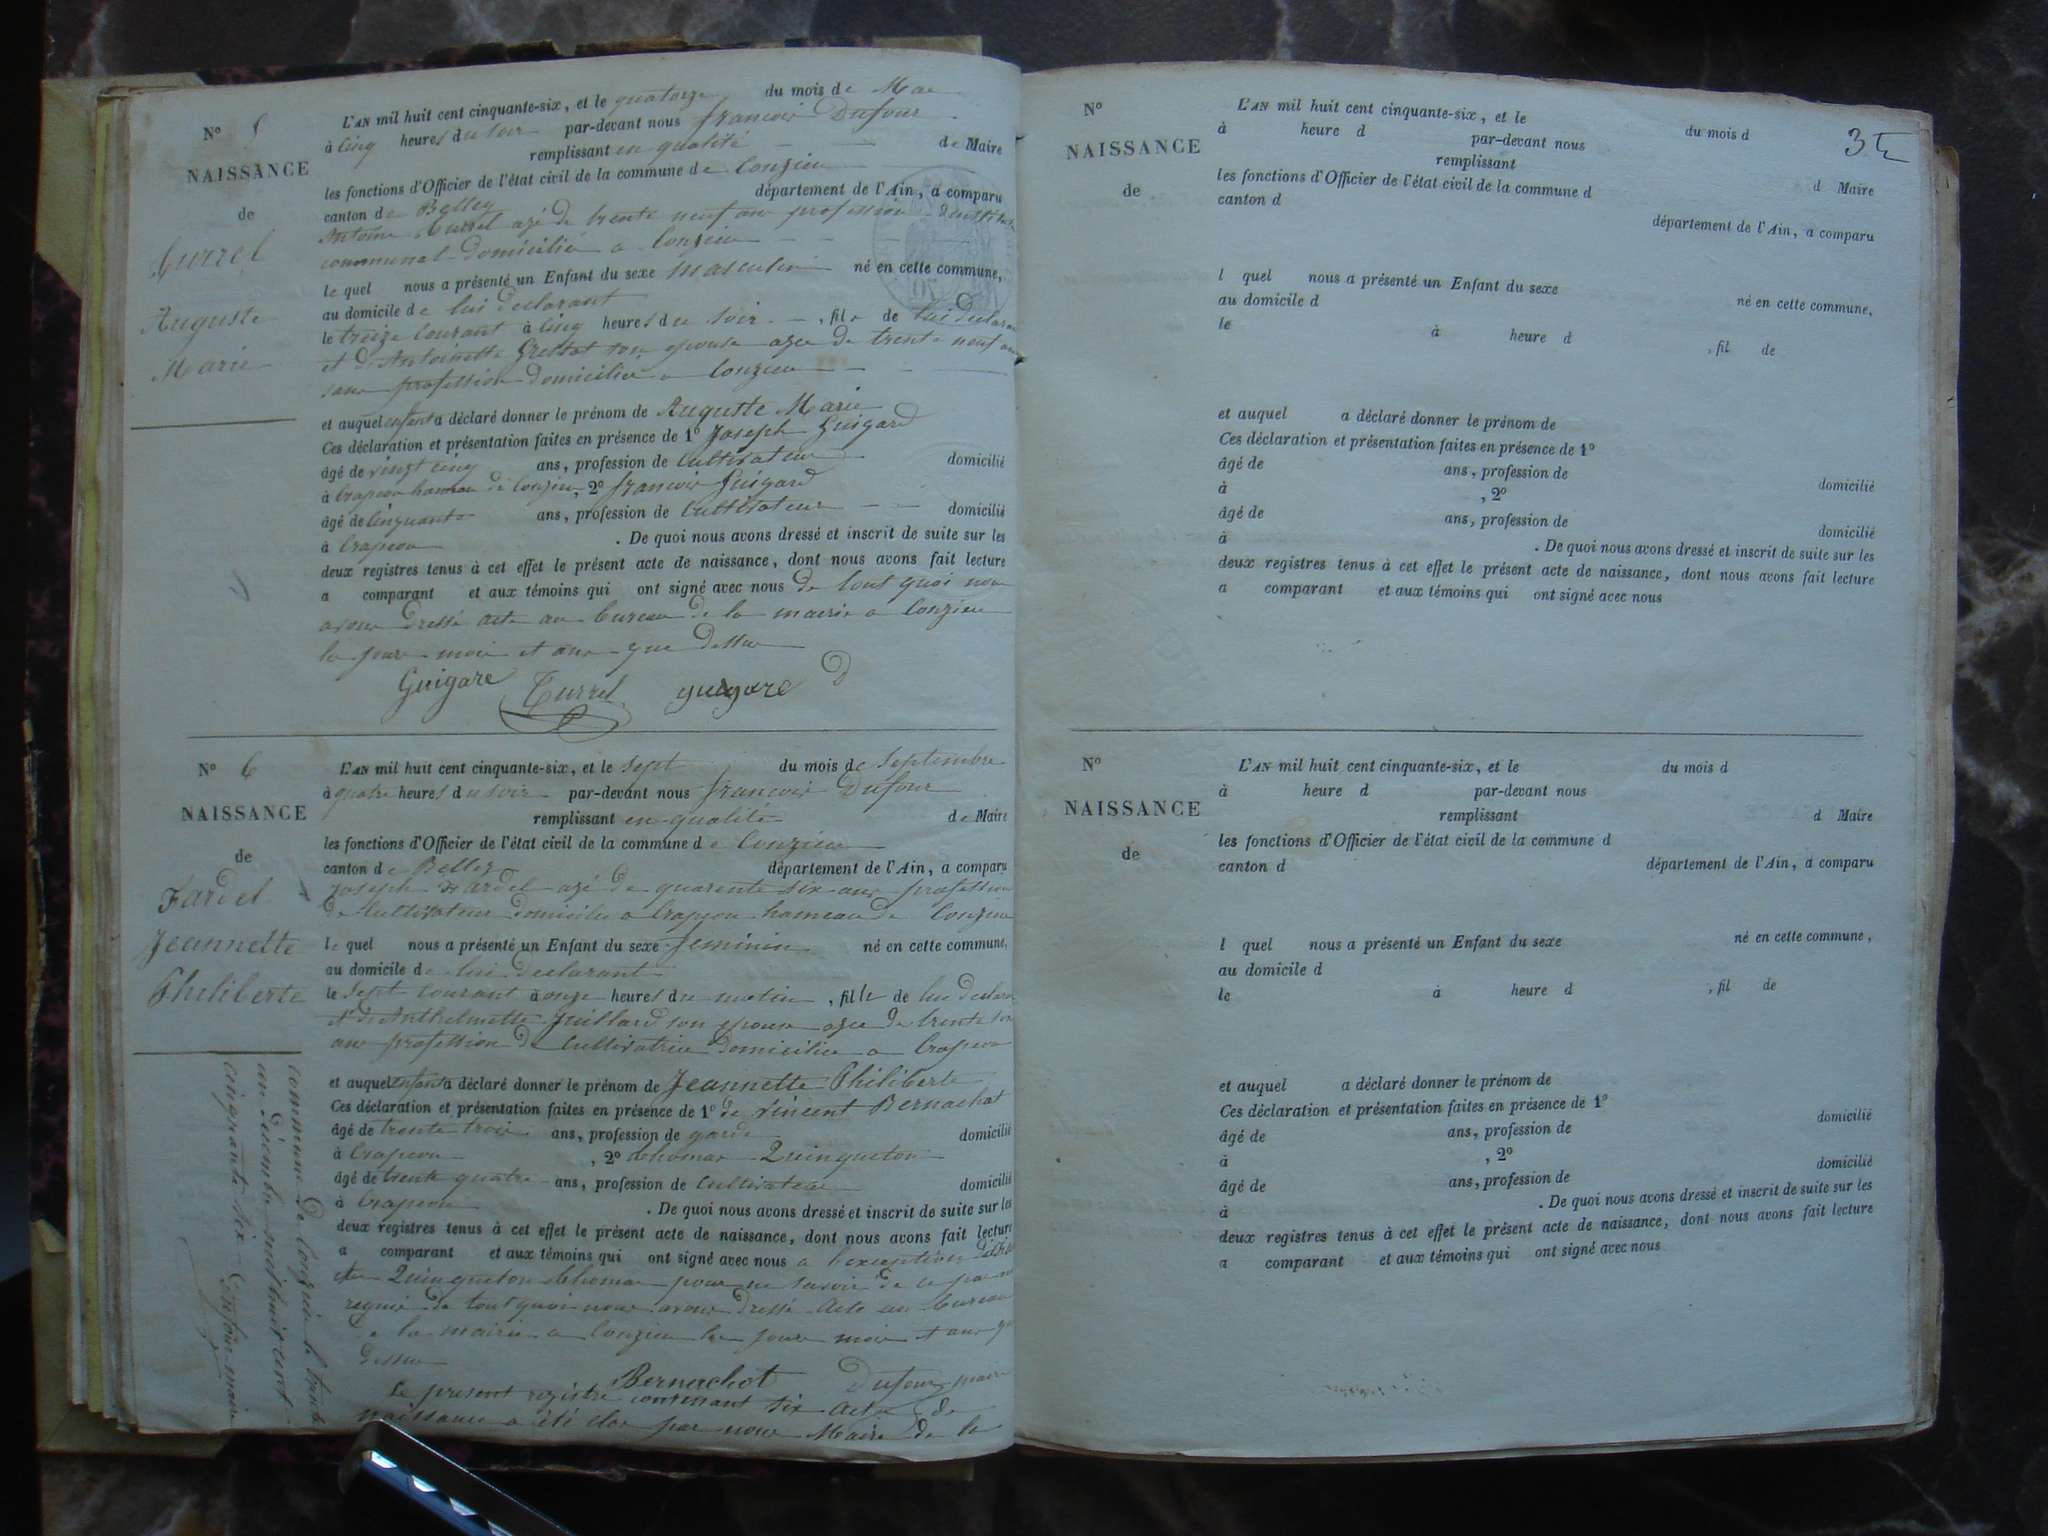 N° 5
NAISSANCE
de
Turrel
Auguste
Marie
L'AN mil huit cent cinquante-six, et le quatorze du mois de Mai
à cinq heures du soir par-devant nous françois Dufour
remplissant en qualité de Maire
les fonctions d'Officier de l'état civil de la commune de Conzieu
canton de Belley département de l'Ain, a comparu
Antoine Turrel agé de trente neuf ans profession
communal domicilié a Conzieu
le quel nous a présenté un Enfant du sexe masculin né en cette commune,
au domicile de lui declarant
le treize courant à cinq heures du soir, fils de lui
et de Antoinette son epouse agee de trente neuf ans
sans profession domiciliée a Conzieu
et auquel enfant a déclaré donner le prénom de Auguste Marie
Ces déclaration et présentation faites en présence de 1° Joseph Guigard
âgé de vingt cinq ans, profession de cultivateur domicilié
à Crapeou hameau de Conzieu, 2° françois Guigard
âgé de cinquante ans, profession de cultivateur domicilié
à Crapeou. De quoi nous avons dressé et inscrit de suite sur les
deux registres tenus à cet effet le présent acte de naissance, dont nous avons fait lecture
a comparant et aux témoins qui ont signé avec nous de tout quoi nous
avons dressé acte au bureau de la mairie a Conzieu
les jour mois et an que dessus
Guigare Turrel guigare
N° 6
NAISSANCE
de
Fardel
Jeannette
Philiberte
L'AN mil huit cent cinquante-six, et le sept du mois de septembre
à quatre heures du soir par-devant nous françois Dufour
remplissant en qualité de Maire
les fonctions d'Officier de l'état civil de la commune de Conzieu
canton de Belley département de l'Ain, a comparu
joseph Fardel agé de quarente six ans profession
de Cultivateur domicilié a Crapeou hameau de Conzieu
le quel nous a présenté un Enfant du sexe feminin né en cette commune,
au domicile de lui declarant
le sept courant à onze heures du matin, fille de lui
et de Anthelmette Juillard son epouse agee de trente
ans profession de Cultivatrice domiciliée a Crapeou
et auquel enfant a déclaré donner le prénom de Jeannette Philiberte
Ces déclaration et présentation faites en présence de 1° de Vincent Bernachot
âgé de trente trois ans, profession de garde domicilié
à Crapeou, 2° thomas Quinqueton
âgé de trente quatre ans, profession de cultivateur domicilié
à Crapeou. De quoi nous avons dressé et inscrit de suite sur les
deux registres tenus à cet effet le présent acte de naissance, dont nous avons fait lecture
a comparant et aux témoins qui ont signé avec nous a l'exception
Quinqueton thomas pour ne savoir de ce
requis de tout quoi nous avons dressé acte au bureau
de la mairie a Conzieu les jour mois et an que
dessus
Bernachot Dufour maire
Le present registre contenant six Actes de
naissance a été clos par nous Maire de la
commune de Conzieu le trente
un décembre mil huit cent
cinquante six Dufour maire
3
N°
NAISSANCE
de
L'AN mil huit cent cinquante-six, et le du mois d
à heure d par-devant nous
remplissant d Maire
les fonctions d'Officier de l'état civil de la commune d
canton d département de l'Ain, a comparu
l quel nous a présenté un Enfant du sexe né en cette commune,
au domicile d
le à heure d, fil de
et auquel a déclaré donner le prénom de
Ces déclaration et présentation faites en présence de 1°
âgé de ans, profession de domicilié
à, 2°
âgé de ans, profession de domicilié
à. De quoi nous avons dressé et inscrit de suite sur les
deux registres tenus à cet effet le présent acte de naissance, dont nous avons fait lecture
a comparant et aux témoins qui ont signé avec nous
N°
NAISSANCE
de
L'AN mil huit cent cinquante-six, et le du mois d
à heure d par-devant nous
remplissant d Maire
les fonctions d'Officier de l'état civil de la commune d
canton d département de l'Ain, a comparu
l quel nous a présenté un Enfant du sexe né en cette commune,
au domicile d
le à heure d, fil de
et auquel a déclaré donner le prénom de
Ces déclaration et présentation faites en présence de 1°
âgé de ans, profession de domicilié
à, 2°
âgé de ans, profession de domicilié
à. De quoi nous avons dressé et inscrit de suite sur les
deux registres tenus à cet effet le présent acte de naissance, dont nous avons fait lecture
a comparant et aux témoins qui ont signé avec nous